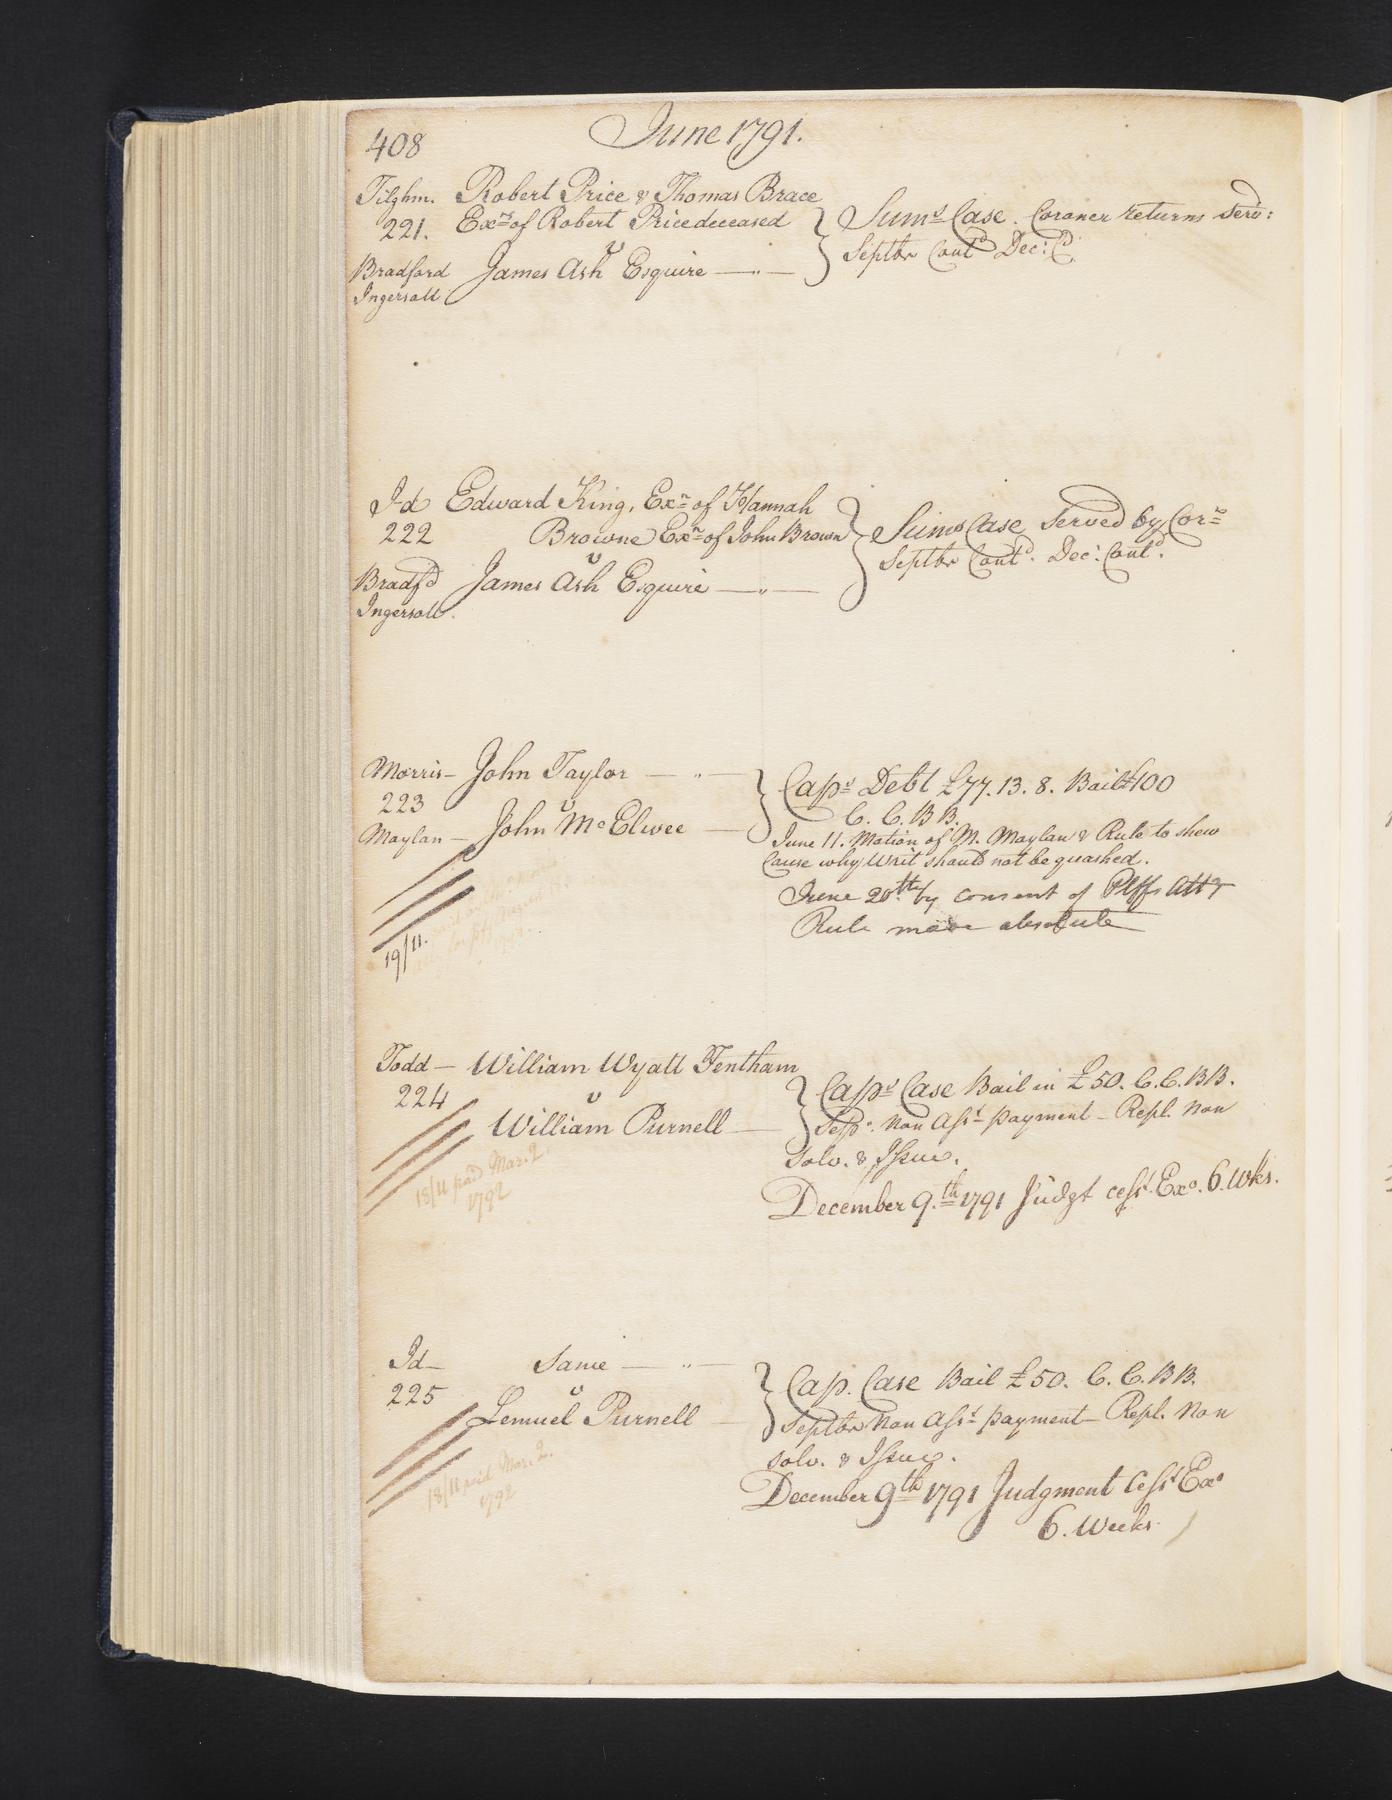 408
June 1791.
Tilghm. Robert Price & Thomas Brace
221. Exrs of Robert Price deceased
v
Bradford James Ash Esquire
Ingersoll
Sums Case. Coroner returns Serv:
Septbr Contd Dec: Cd
Id Edward King, Exr of Hannah
222 Browne Exr of John Brown
v
Bradfd James Ash Esquire
Ingersoll.
Sums Case Served by Corr
Septbr Contd. Dec: Contd.
Morris John Taylor
223
v
Moylan John McElwee
19/11.
Caps Debt £77.13.8. Bail £100
C. C. B B.
June 11. Motion of M. Moylan & Rule to shew
Cause why Writ should not be quashed.
June 20th by consent of Plffs Atty
Rule made absolute
Todd William Wyatt Fentham
224
v
William Purnell
18/11 paid Mar. 2.
1792
Caps Case Bail in £50. C.C.BB.
Sepr. Non Asst payment Repl. Non
Solv. & Issue.
December 9.th 1791 Judgt cesst Exo. 6. Wks.
Id Same
225
v
Lemuel Purnell
18/11 paid Mar. 2.
1792
Cap. Case Bail £50. C. C. BB.
Septbr Non Asst payment Repl. Non
solv. & Issue.
December 9th 1791 Judgment Cesst Exo
6. Weeks.